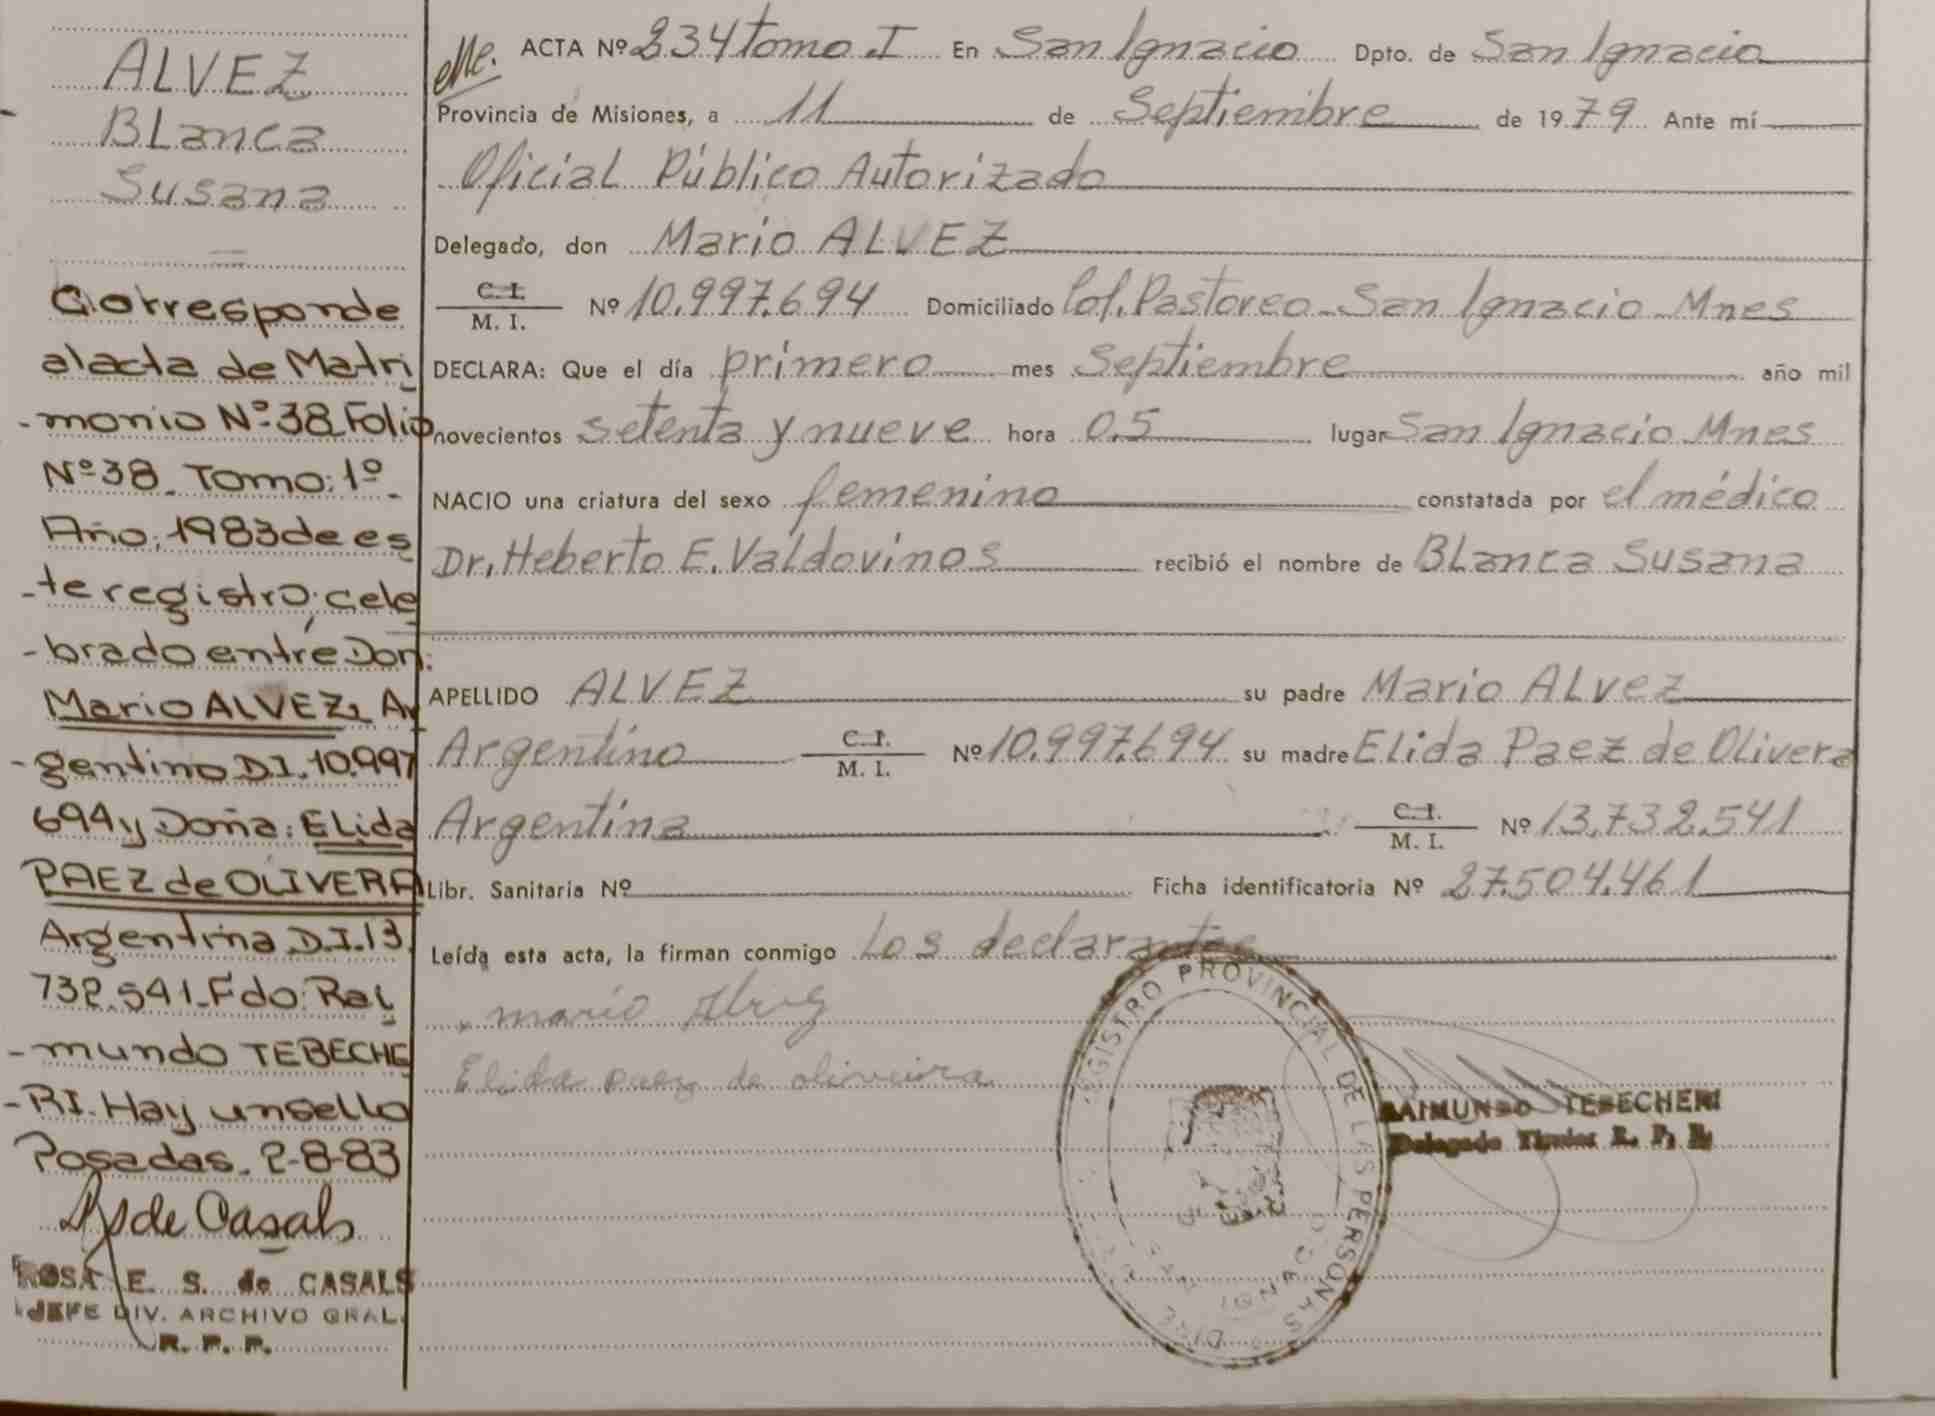 ALVEZ
BLanca
Susana
Corresponde
al acta de Matri
-monio Nº 38 Folio
Nº 38 Tomo: 1º
Año, 1983 de es
-te registro; cele
-brado entre Don:
Mario ALVEZ, Ar
-gentino D.I. 10.997
694 y Doña: ELida
PAEZ de OLIVERA
Argentina D.I. 13.
732.541. Fdo: Rai
-mundo TEBECHE
-RI. Hay un sello
Posadas. 2-8-83
ROSA E. S. de CASALS
JEFE DIV. ARCHIVO GRAL.
R. P. P.
ACTA Nº 234 tomo I En San Ignacio Dpto. de San Ignacio
Provincia de Misiones, a 11 de Septiembre de 1979 Ante mí
Oficial Público Autorizado
Delegado, don Mario ALVEZ
C. I.
M. I. Nº 10.997.694 Domiciliado Col. Pastoreo - San Ignacio Mnes
DECLARA: Que el día primero mes Septiembre año mil
novecientos setenta y nueve hora 0.5 lugar San Ignacio Mnes
NACIO una criatura del sexo femenino constatada por el médico
Dr. Heberto E. Valdovinos recibió el nombre de BLanca Susana
APELLIDO ALVEZ su padre Mario ALvez
Argentino C. I. M. I. Nº 10.997.694 su madre Elida Paez de Olivera
Argentina C. I. M. I. Nº 13.732.541
Libr. Sanitaria Nº Ficha identificatoria Nº 27.504.461
Leída esta acta, la firman conmigo Los declarantes
mario
Elida paez de oliveira
REGISTRO PROVINCIAL DE LAS PERSONAS
SAN IGNACIO
RAIMUNDO TEBECHERI
Delegado Titular R. P. P.